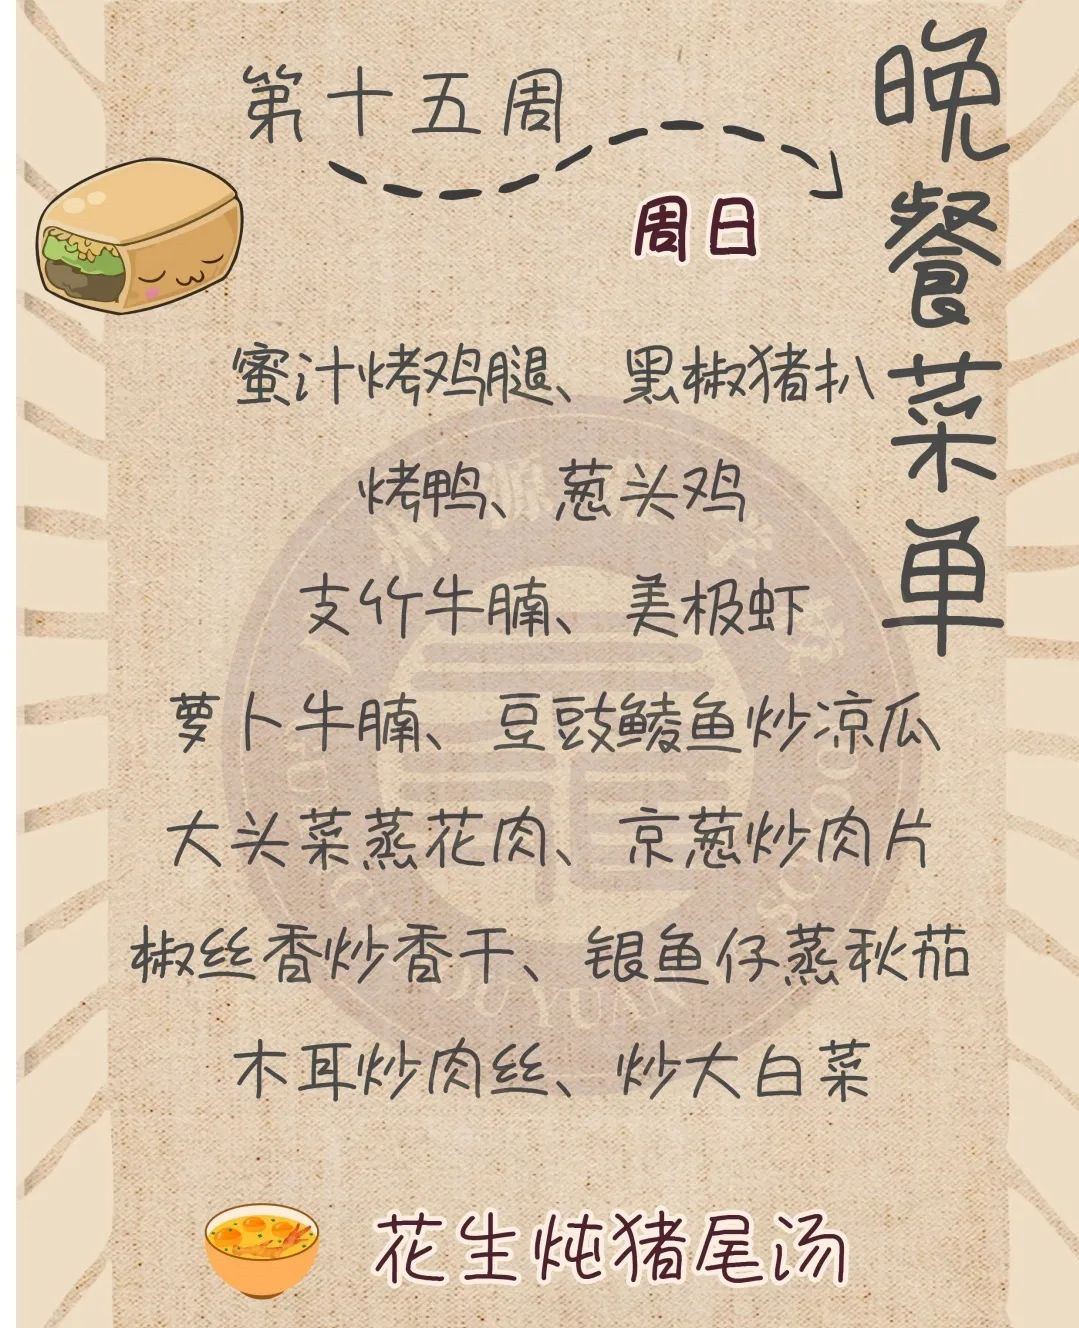 第十五周
周日
晚餐菜单
蜜汁烤鸡腿、黑椒猪扒
烤鸭、葱头鸡
支竹牛腩、美极虾
萝卜牛腩、豆豉鲮鱼炒凉瓜
大头菜蒸花肉、京葱炒肉片
椒丝香炒香干、银鱼仔蒸秋茄
木耳炒肉丝、炒大白菜
花生炖猪尾汤